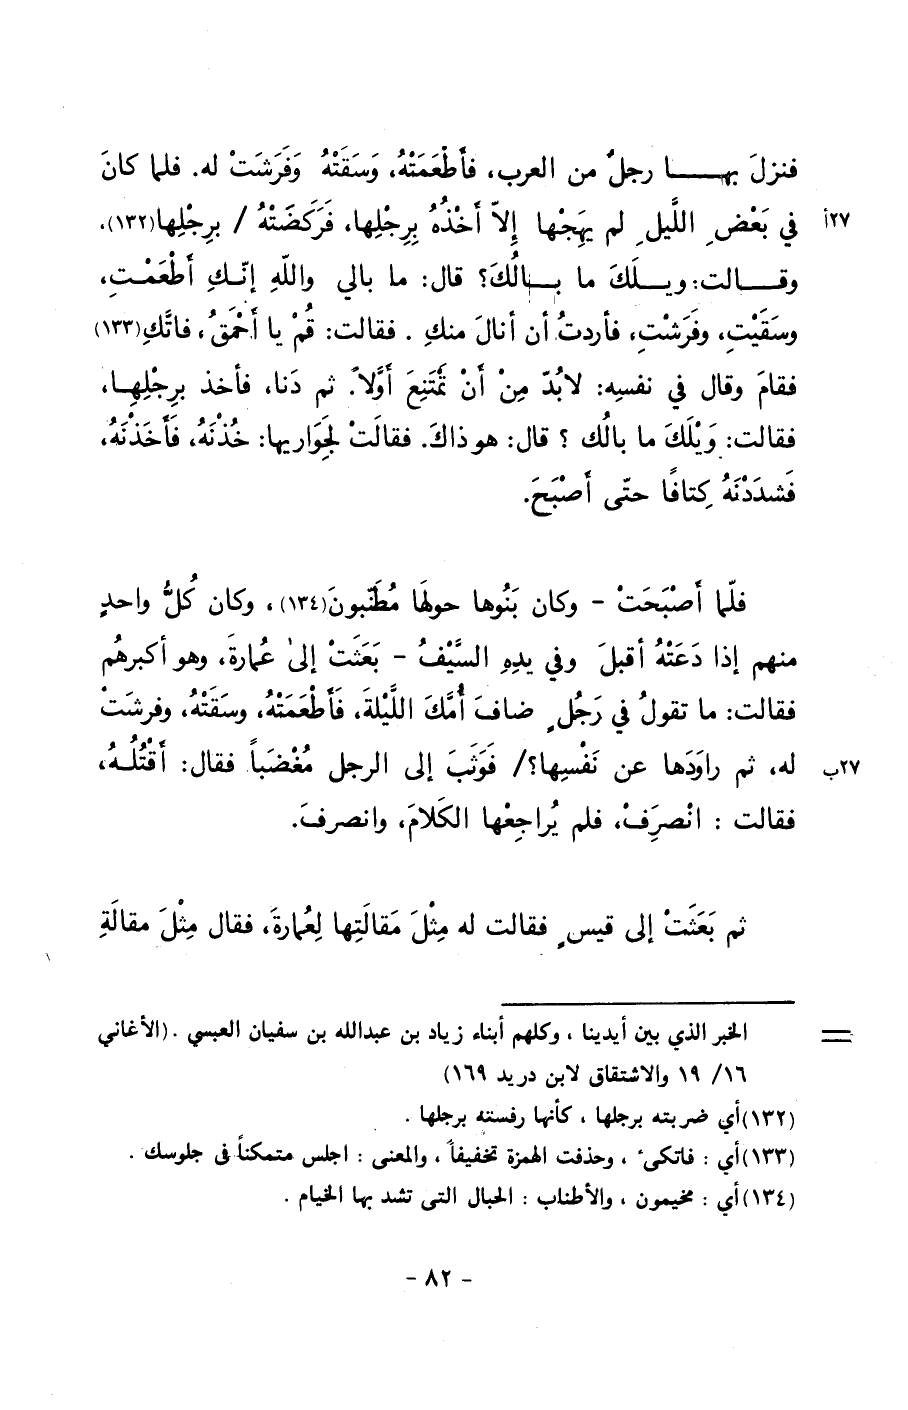 فنزلَ بهـــا رجلٌ من العرب، فأَطْعَمَتْهُ، وَسَقَتْهُ وَفَرَشَتْ له. فلما كانَ
٢٧أ في بَعْضِ اللَّيلِ لم يَهِجْها إِلاّ أَخْذُهُ بِرِجْلِها، فَرَكَضَتْهُ / برِجْلِها(١٣٢).
وقـــالت: ويـــلَكَ ما بـــالُكَ؟ قال: ما بالي واللّهِ إنّـكِ أَطْعَمْـتِ،
وسَقَيْتِ، وفَرَشْتِ، فأردتُ أن أنالَ منكِ . فقالت: قُمْ يا أَحْمَقُ، فاتَّكِ(١٣٣)
فقامَ وقال في نفسِه: لابُدّ مِنْ أَنْ تَمْتَنِعَ أَوَّلاً. ثم دَنا، فأخذ برِجْلِهـا،
فقالت: وَيْلَكَ ما بالُك ؟ قال: هو ذاكَ. فقالَتْ لِجَوَاريها: خُذْنَهُ، فَأَخَذْنَهُ،
فَشدَدْنَهُ كِتافًا حتّى أَصْبَحَ.
فلّما أَصْبَحَتْ - وكان بَنُوها حولَها مُطَنِّبونَ(١٣٤)، وكان كُلُّ واحدٍ
منهم إذا دَعَتْهُ أقبلَ وفي يدِهِ السَّيْفُ - بَعَثَتْ إلىٰ عُمارةَ، وهو أكبرهُم
فقالت: ما تقولُ في رَجُلٍ ضافَ أُمَّكَ اللَّيْلةَ، فَأَطْعَمَتْهُ، وسَقَتْهُ، وفرشَتْ
٢٧ب له، ثم راوَدَها عن نَفْسِها؟/ فَوَثَبَ إلى الرجل مُغْضَباً فقال: أَقْتُلُـهُ،
فقالت : انْصرِفْ، فلم يُراجِعْها الكَلامَ، وانصرفَ.
ثم بَعَثَتْ إلى قيسٍ فقالت له مِثْلَ مَقالَتِها لِعُمارةَ، فقال مِثْلَ مقالَةِ
= الخبر الذي بين أيدينا ، وكلهم أبناء زياد بن عبدالله بن سفيان العبسي . (الأغاني
١٦/ ١٩ والاشتقاق لابن دريد ١٦٩)
(١٣٢)أي ضربته برجلها ، كأنها رفسته برجلها .
(١٣٣)أي : فاتكىء ، وحذفت الهمزة تخفيفاً ، والمعنى : اجلس متمكناً فى جلوسك .
(١٣٤)أي : مخيمون ، والأطناب : الحبال التى تشد بها الخيام .
- ٨٢ -